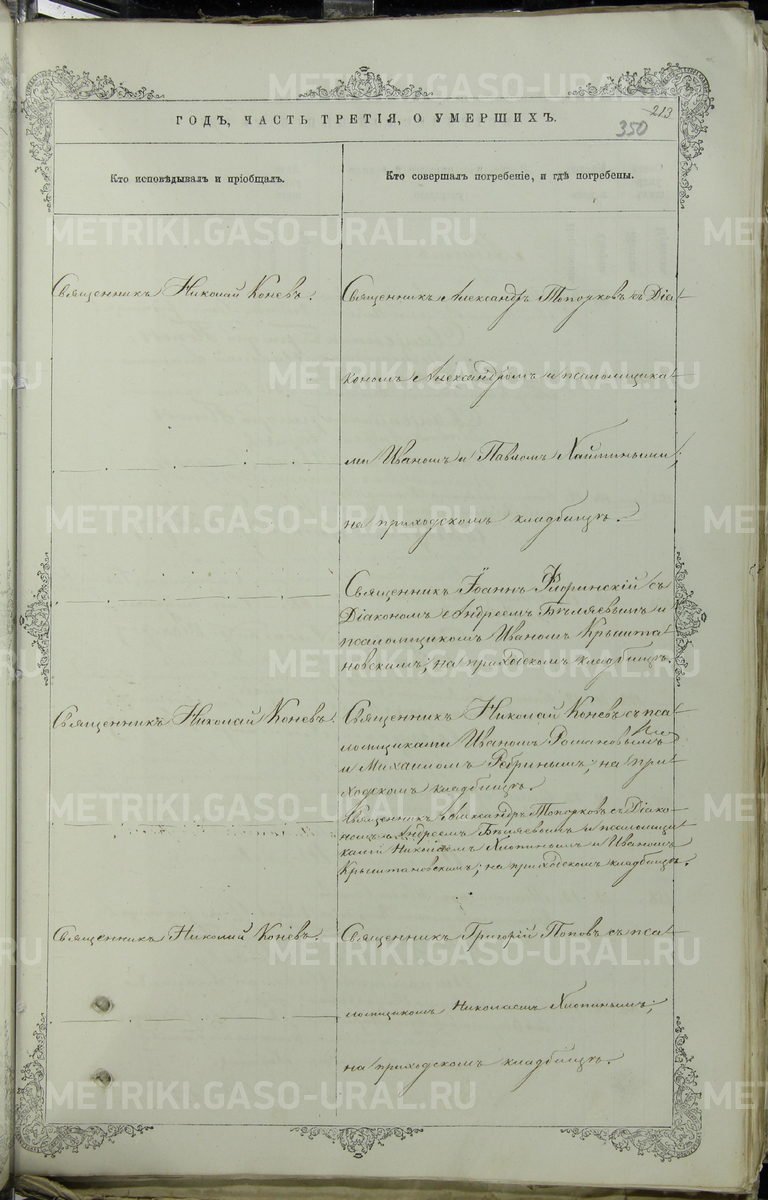 ГОДЪ, ЧАСТЬ ТРЕТІЯ, О УМЕРШИХЪ.
213
350
Кто исповѣдывалъ и пріобщалъ.
Кто совершалъ погребеніе, и гдѣ погребены.
Священникъ Николай Коневъ.
Священникъ Александръ Топорковъ съ Діа-
кономъ Александромъ и псаломщика-
ми Иваномъ и Павломъ
на приходскомъ кладбищѣ.
Священникъ Іоаннъ Флоринскій съ
Діакономъ Андреемъ Бѣляевымъ и
псаломщикомъ Иваномъ Крышта-
новскимъ; на приходскомъ кладбищѣ.
Священникъ Николай Коневъ.
Священникъ Николай Коневъ съ пса-
ломщиками Иваномъ Романовымъ
и Михаиломъ Ребринымъ; на при-
ходскомъ кладбищѣ.
Священникъ Александръ Топорковъ съ Діако-
номъ Андреемъ Бѣляевымъ и псаломщи-
ками Хиопинымъ и Иваномъ
Крыштановскимъ; на приходскомъ кладбищѣ.
Священникъ Николай Коневъ.
Священникъ Григорій Поповъ съ пса-
ломщикомъ Николаемъ Хиопинымъ;
на приходскомъ кладбищѣ.
METRIKI.GASO-URAL.RU